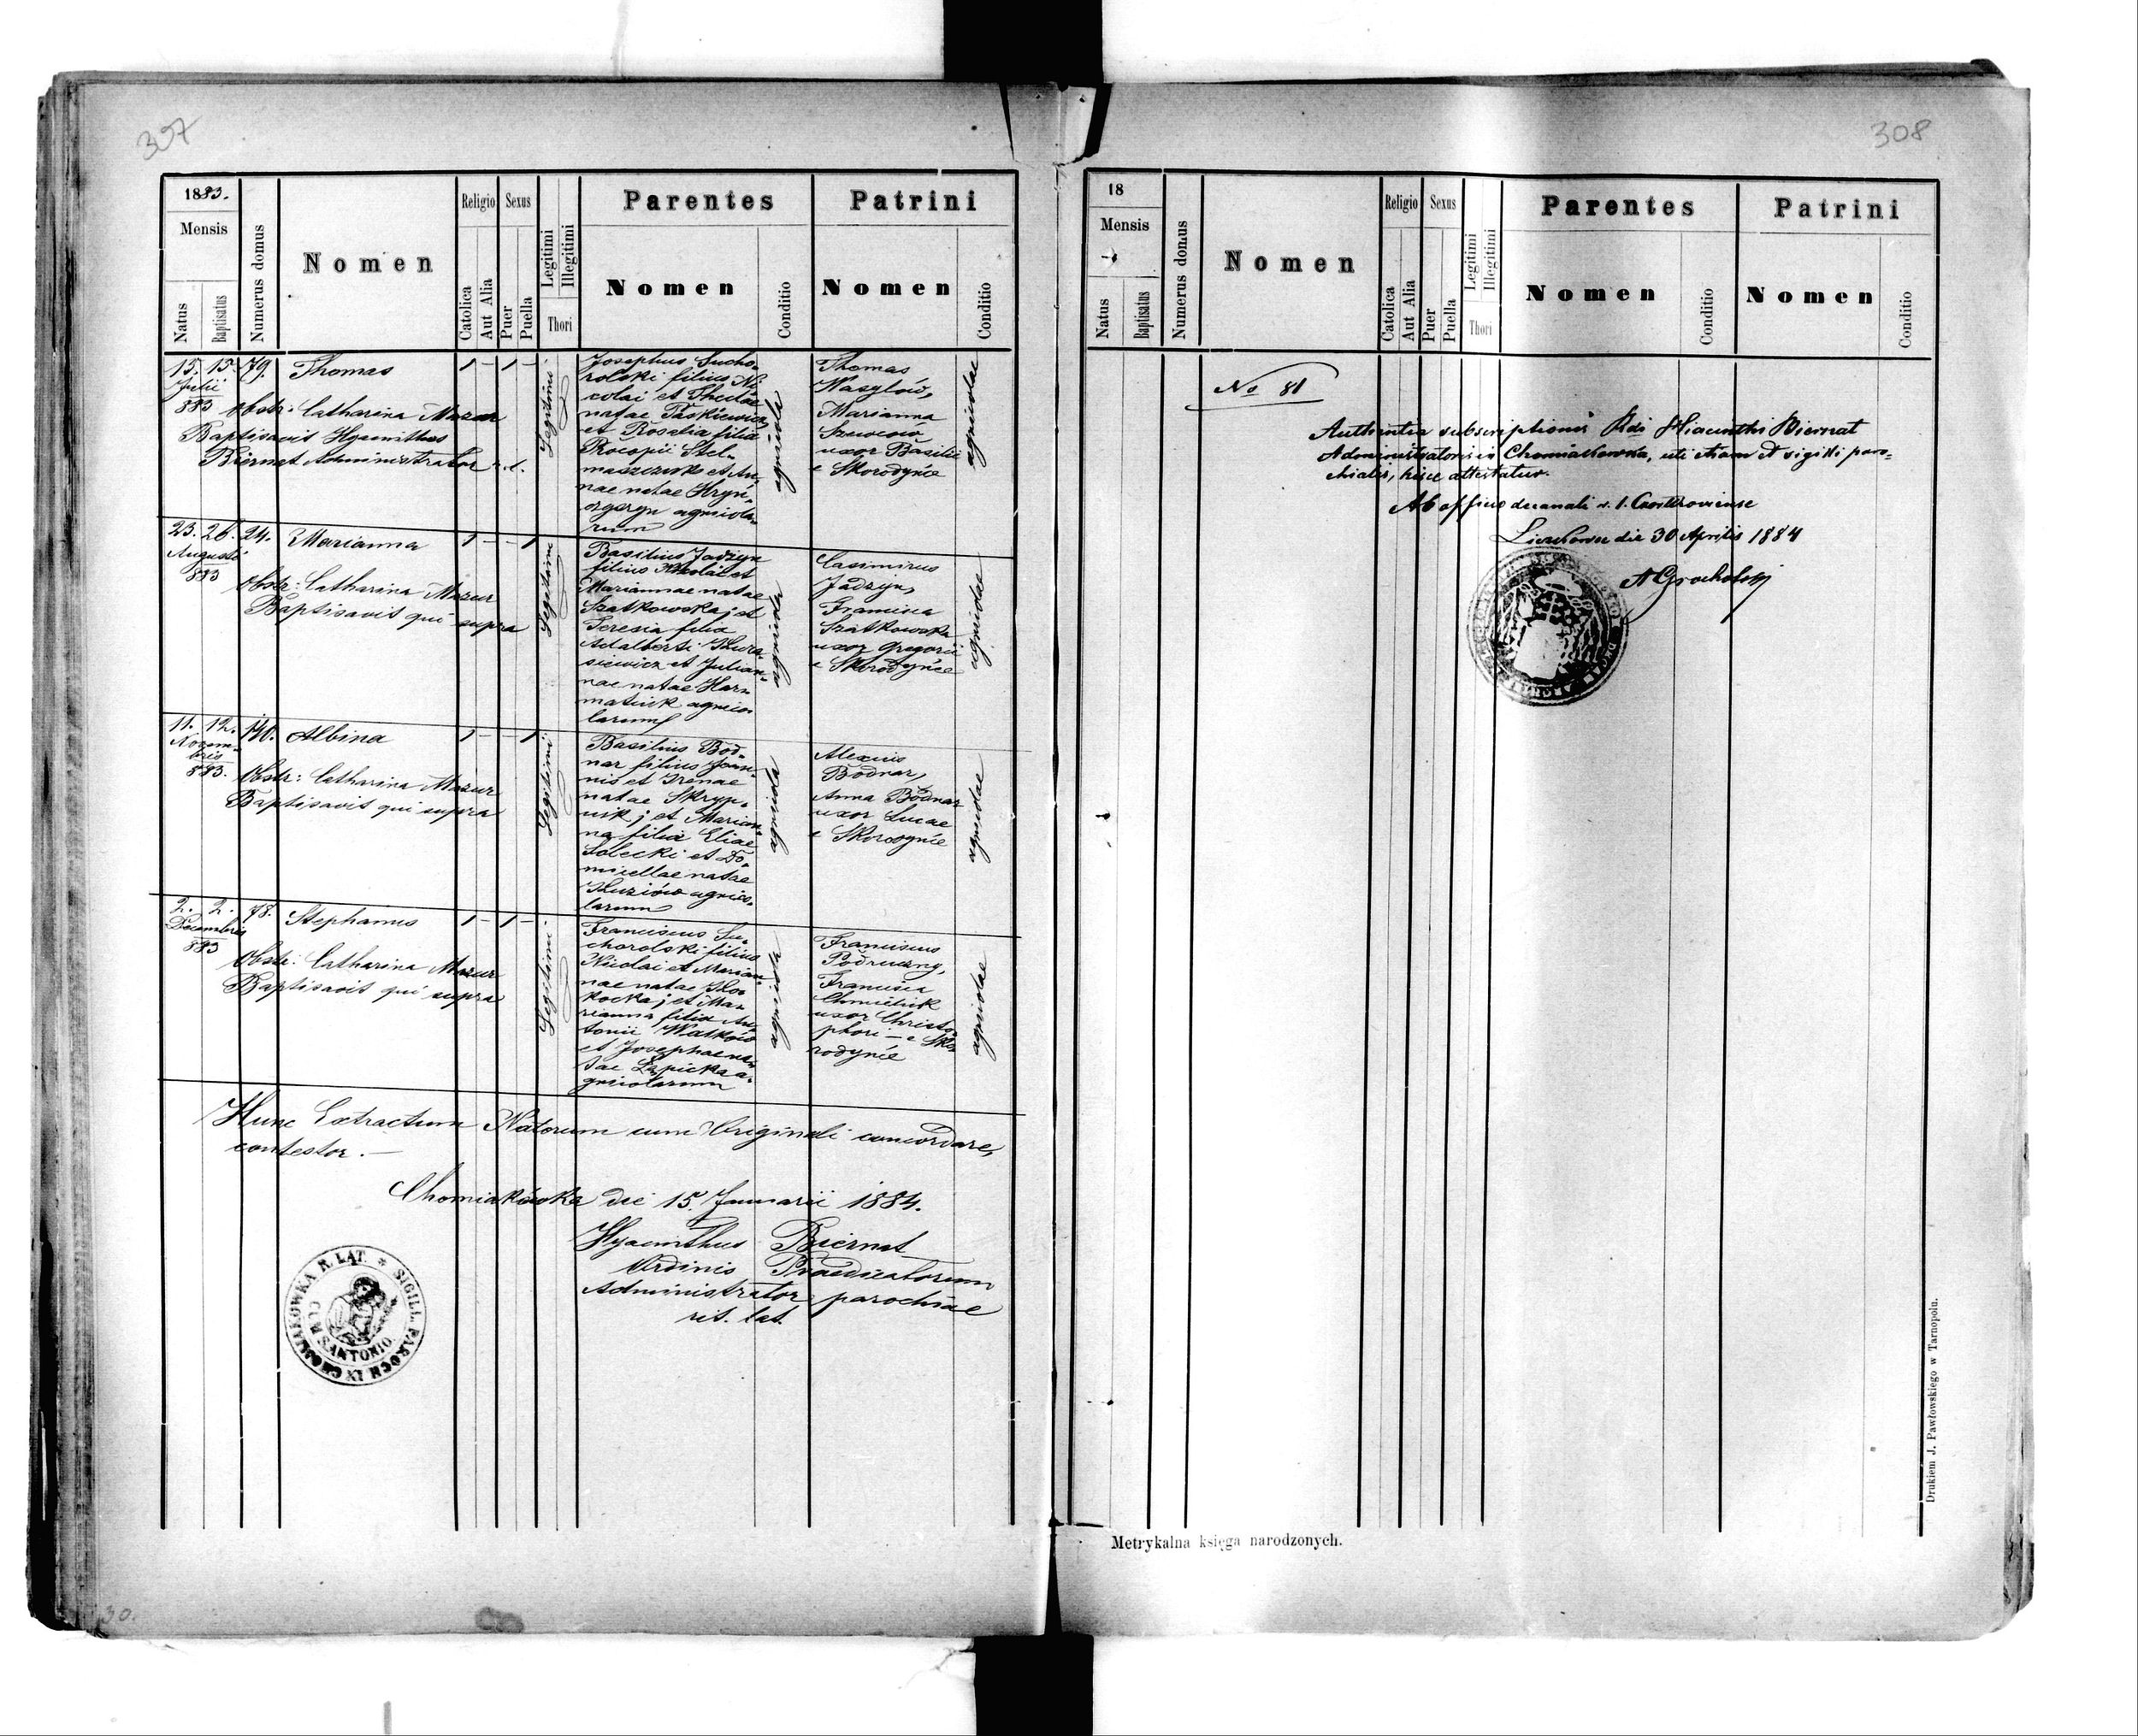 307
1883.
Mensis
Natus
Baptisatus
Numerus domus
Nomen
Religio
Catolica
Aut Alia
Sexus
Puer
Puella
Legitimi
Illegitimi
Thori
Parentes
Nomen
Conditio
Patrini
Nomen
Conditio
15. 15. 79. Thomas 1 - 1 -
Julii
883
Obstr: Catharina Mazur
Baptisavit Hyacinthus
Biernat Administrator r. l.
Legitimi
Josephus Sucho-
rolski filius Ni-
colai et Theclae
natae Paskiewicz
et Rosalia filia
Procopii Stel-
maszczuk et An-
nae natae Hryń-
agricola-
rum
agricola
Thomas
Wasylów,
Marianna
Szewców
uxor Basilii
e Skorodyńce
agricolae
23. 26. 24. Marianna 1 - - 1
Augusti
883
Obstr: Catharina Mazur
Baptisavit qui supra
Legitimi
Basilius Jadzyn
filius Nicolai et
Mariannae natae
Szatkowska; et
Teresia filia
Adalberti
et Julian-
nae natae Har-
matiuk agrico-
larum
agricola
Casimirus
Jadzyn,
Francisca
Szatkowska
uxor Gregorii
e Skorodyńce
agricolae
11. 12. 140. Albina 1 - - 1
Novem-
bris
883.
Obstr: Catharina Mazur
Baptisavit qui supra
Legitimi
Basilius Bod-
nar filius Joan-
nis et Irenae
natae Skryp-
nik; et Marian-
na filia Eliae
Solecki et Do-
micellae natae
Kuziów agrico-
larum
agricola
Alexius
Bodnar,
Anna Bodnar
uxor Lucae
e Skorodyńce
agricolae
2. 2. 78. Stephanus 1 - 1 -
Decembris
883
Obstr: Catharina Mazur
Baptisavit qui supra
Legitimi
Franciscus Su-
chorolski filius
Nicolai et Marian-
nae natae
et Ma-
rianna filia An-
tonii Watków
et Josephae na-
tae Łapicka a-
gricolarum
agricola
Franciscus
Podruczny,
Francisca
Chmieluk
uxor Christo-
phori - e Sko-
rodyńce
agricolae
Hunc Extractum Natorum cum Originali concordare,
contestor. -
Chomiakówka die 15. Januarii 1884.
Hyacinthus Biernat
Ordinis Praedicatorum
Administrator parochiae
rit. lat.
SIGILL. PAROCH IN CHOMIAKOWKA R. LAT.
CUR S. ANTONIO
30.
308
18
Mensis
Natus
Baptisatus
Numerus domus
Nomen
Religio
Catolica
Aut Alia
Sexus
Puer
Puella
Legitimi
Illegitimi
Thori
Parentes
Nomen
Conditio
Patrini
Nomen
Conditio
No 81
Authentia subscriptionis Rdi Hiacinthi Biernat
Administratoris in Chomiakowka, uti etiam et sigilli paro-
chialis, hisce attestatur.
Ab officio decanali r. l. Czortkoviense
die 30 Aprilis 1884
Drukiem J. Pawłowskiego w Tarnopolu.
Metrykalna księga narodzonych.